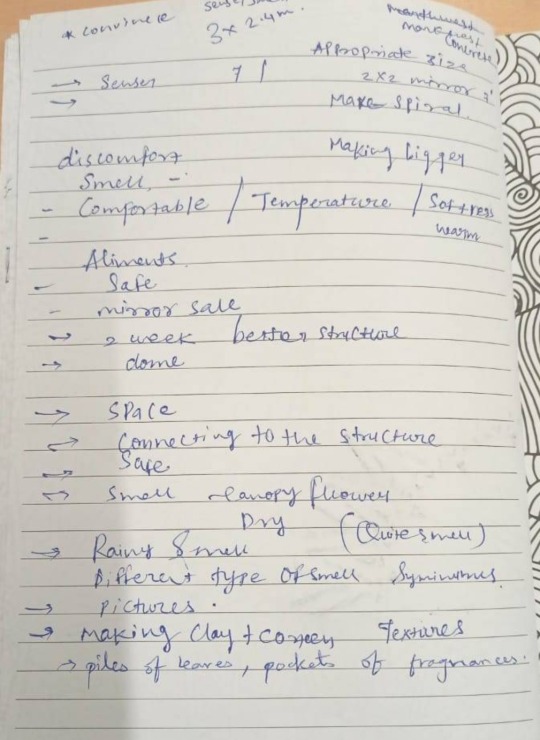 * convince
3x 2.4m.
more (concrete)
Appropriate size
→ Senses 7 /
2x2 mirror
→ Make spiral.
discomfort Making bigger
Smell, -
- Comfortable / Temperature / Softness
- warm
Aliments
- Safe
- mirror sale
→ 2 week better structure
→ dome
→ Space
→ Connecting to the structure
→ Safe
→ Small canopy flower
Dry
→ Rainy Smell (Quite smell)
Different type of smell
→ pictures.
→ Making Clay + Textures
→ piles of leaves, pockets of fragnances.